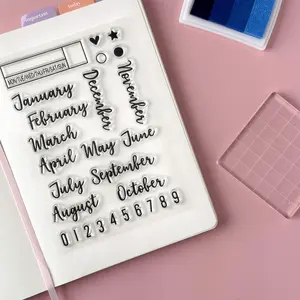 MON TUE WED THU FRI SAT SUN
December
November
January
February
March
April May June
July September
August October
0 1 2 3 4 5 6 7 8 9